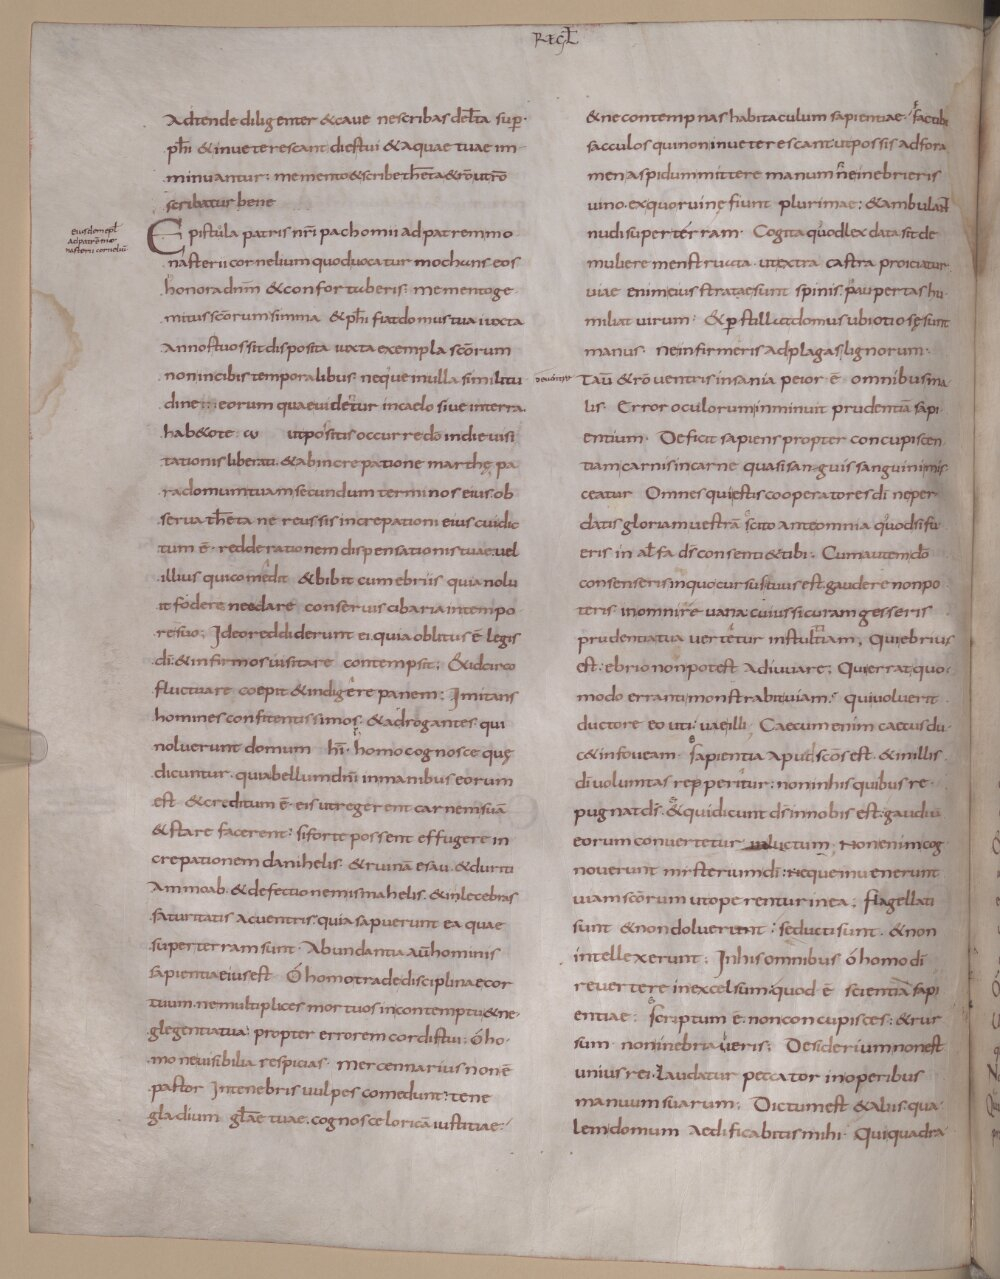 REGL
Adtende diligenter & caue ne scribas del̅ta sup̲
phi & inueterescant dies tui & aquae tuae im
minuantur; memento & scribe th̅eta & ro ut r̅o
scribatur bene
eiusdem ep̅l
ad patre̅ mo
nasterii corneliu̅
Epistula patris nr̅i pachomii ad patrem mo
nasterii cornelium qui uocatur mochans. eos
honora dn̅m & confortuberis. memento ge
mitus sc̅orum simma & phi fiat domus tua iuxta
Annos tuos sit disposita iuxta exempla sc̅orum
non in cibis temporalibus. neque in ulla similitu
dine eorum quae uidetur in caelo siue in terra.
hab& ote. ω ut positis occurredo in die uisi
tationis liberati. & ab increpatione marthę pa
ra domum tuam secundum terminos eius. ob
serua th̅eta ne reus sis increpationi eius cui dic
tum e̅. redde rationem dispensationis tuae. uel
illius qui comedit & bibit cum ebriis quia nolu
it fodere nec dare conseruis cibaria in tempo
re suo; Ideo reddiderunt ei. quia oblitus e̅ legis
di̅. & infirmos uisitare contempsit; & idcirco
fluctuare coepit & indigere panem; Imitans
homines confitentissimos. & adrogantes. qui
noluerunt domum hi̅. homo cognosce quę
dicuntur. quia bellum dn̅i in manibus eorum
est & creditum e̅. eis ut regerent carnem sua̅
& stare facerent; si forte possent effugere in
crepationem danihelis. & ruina̅ esau. & duriti
Am moab. & defectionem ismahelis. & inlecebras
saturitatis ac uentris. quia sapuerunt ea quae
super terram sunt. Abundantia au̅ hominis
sapientia eius est O homo trade disciplinae cor
tuum. ne multiplices mortuos in contemptu & ne
glegentia tua; propter errorem cordis tui; O ho
mo ne uisibilia respicias. mercennarius non e̅
pastor In tenebris uulpes comedunt; tene
gladium gl̅ae tuae. cognosce lorica̅ iustitiae;
& ne contempnas habitaculum sapientiae. factibi
sacculos qui non inueterescant ut possis ad fora
men aspidum mittere manum ne inebrieris
uino. ex quo ruinę fiunt plurimae; & ambulant
nudi super terram Cogita quod lex data sit de
muliere menstruata. ut extra castra proiciatur
uiae enim eius stratae sunt spinis. paupertas hu
miliat uirum; & perstillat domus ubi otiosę sunt
manus. ne infirmeris ad plagas lignorum.
Tau̅ & ro̅ uentris insania peior e̅ omnibus ma
lis. Error oculorum inminuit prudentia̅ sapi
entium. Deficit sapiens propter concupiscen
tiam carnis in carne quasi sanguis sanguini mis
ceatur Omnes qui estis cooperatores di̅ ne per
datis gloriam uestra̅ scito ante omnia quod si fu
eris in al̅fa ds̅ consenti& tibi. Cum autem do̅
consenseris in quo cursus tuus est. gaudere non po
teris. in omni re uana. cuius si curam gesseris
prudentia tua uertetur in stultitiam; Qui ebrius
est; ebrio non potest adiuuare; Qui errat. quo
modo erranti monstrabit uiam; qui voluerit
ductore eo uti. uae illi Caecum enim caecus du
c& in foueam. sapientia apud sco̅s est. & in illis
di̅ uoluntas repperitur; non in his quibus re
pugnat ds̅. & qui dicunt ds̅ in nobis est. gaudiu̅
eorum conuertetur in luctum; non enim cog
nouerunt misterium di̅; neque inuenerunt
uiam sc̅orum ut operentur in ea; flagellati
sunt & non doluerunt; seducti sunt. & non
intellexerunt; In his omnibus O homo di̅
reuertere in excelsum quod e̅ scientia sapi
entiae; scriptum e̅. non concupisces; & rur
sum non inebraueris; Desiderium non est
unius rei. Laudatur peccator in operibus
manuum suarum; Dictum est & aliis. qua
lem domum aedificabitis mihi. Qui quadra